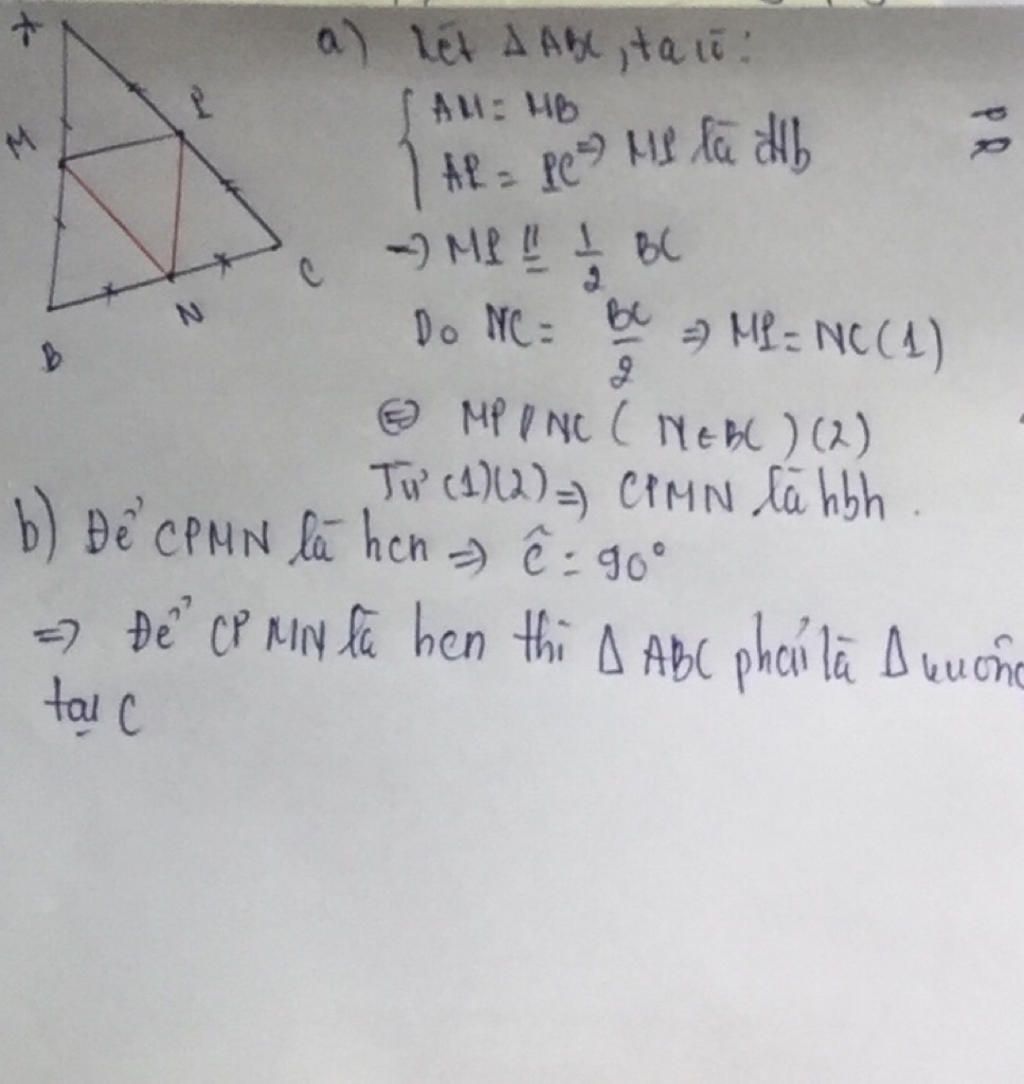 A
P
M
C
N
B
a) Xét Δ ABC, ta có:
{ AM = MB
AP = PC => MP là đtb
-> MP // = 1/2 BC
Do NC = BC/2 => MP = NC (1)
<=> MP // NC ( N ∈ BC ) (2)
Từ (1)(2) => CPMN là hbh .
b) Để CPMN là hcn => Ĉ = 90°
=> Để CPMN là hcn thì Δ ABC phải là Δ vuông
tại C